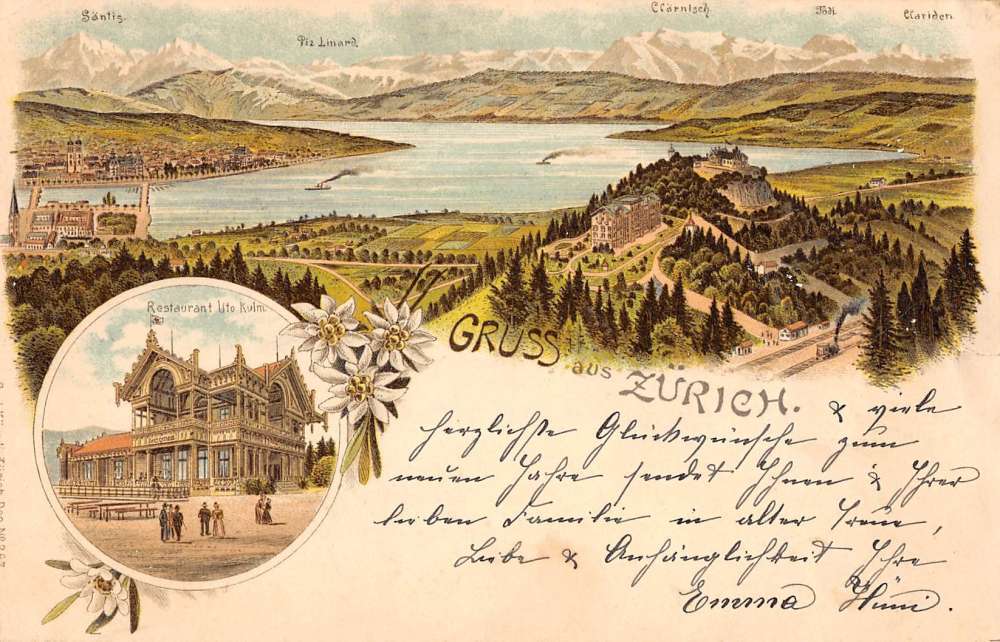 Säntis.
Piz Linard.
Clärnisch
Tödi
Clariden.
Restaurant Uto Kulm.
GRUSS aus ZÜRICH.
& viele
herzlichste Glückwünsche zum
neuen Jahre sendet Ihnen & Ihrer
lieben Familie in alter Treue,
Liebe & Anhänglichkeit Ihre
Emma Hüni.
Zürich Dep. No 267